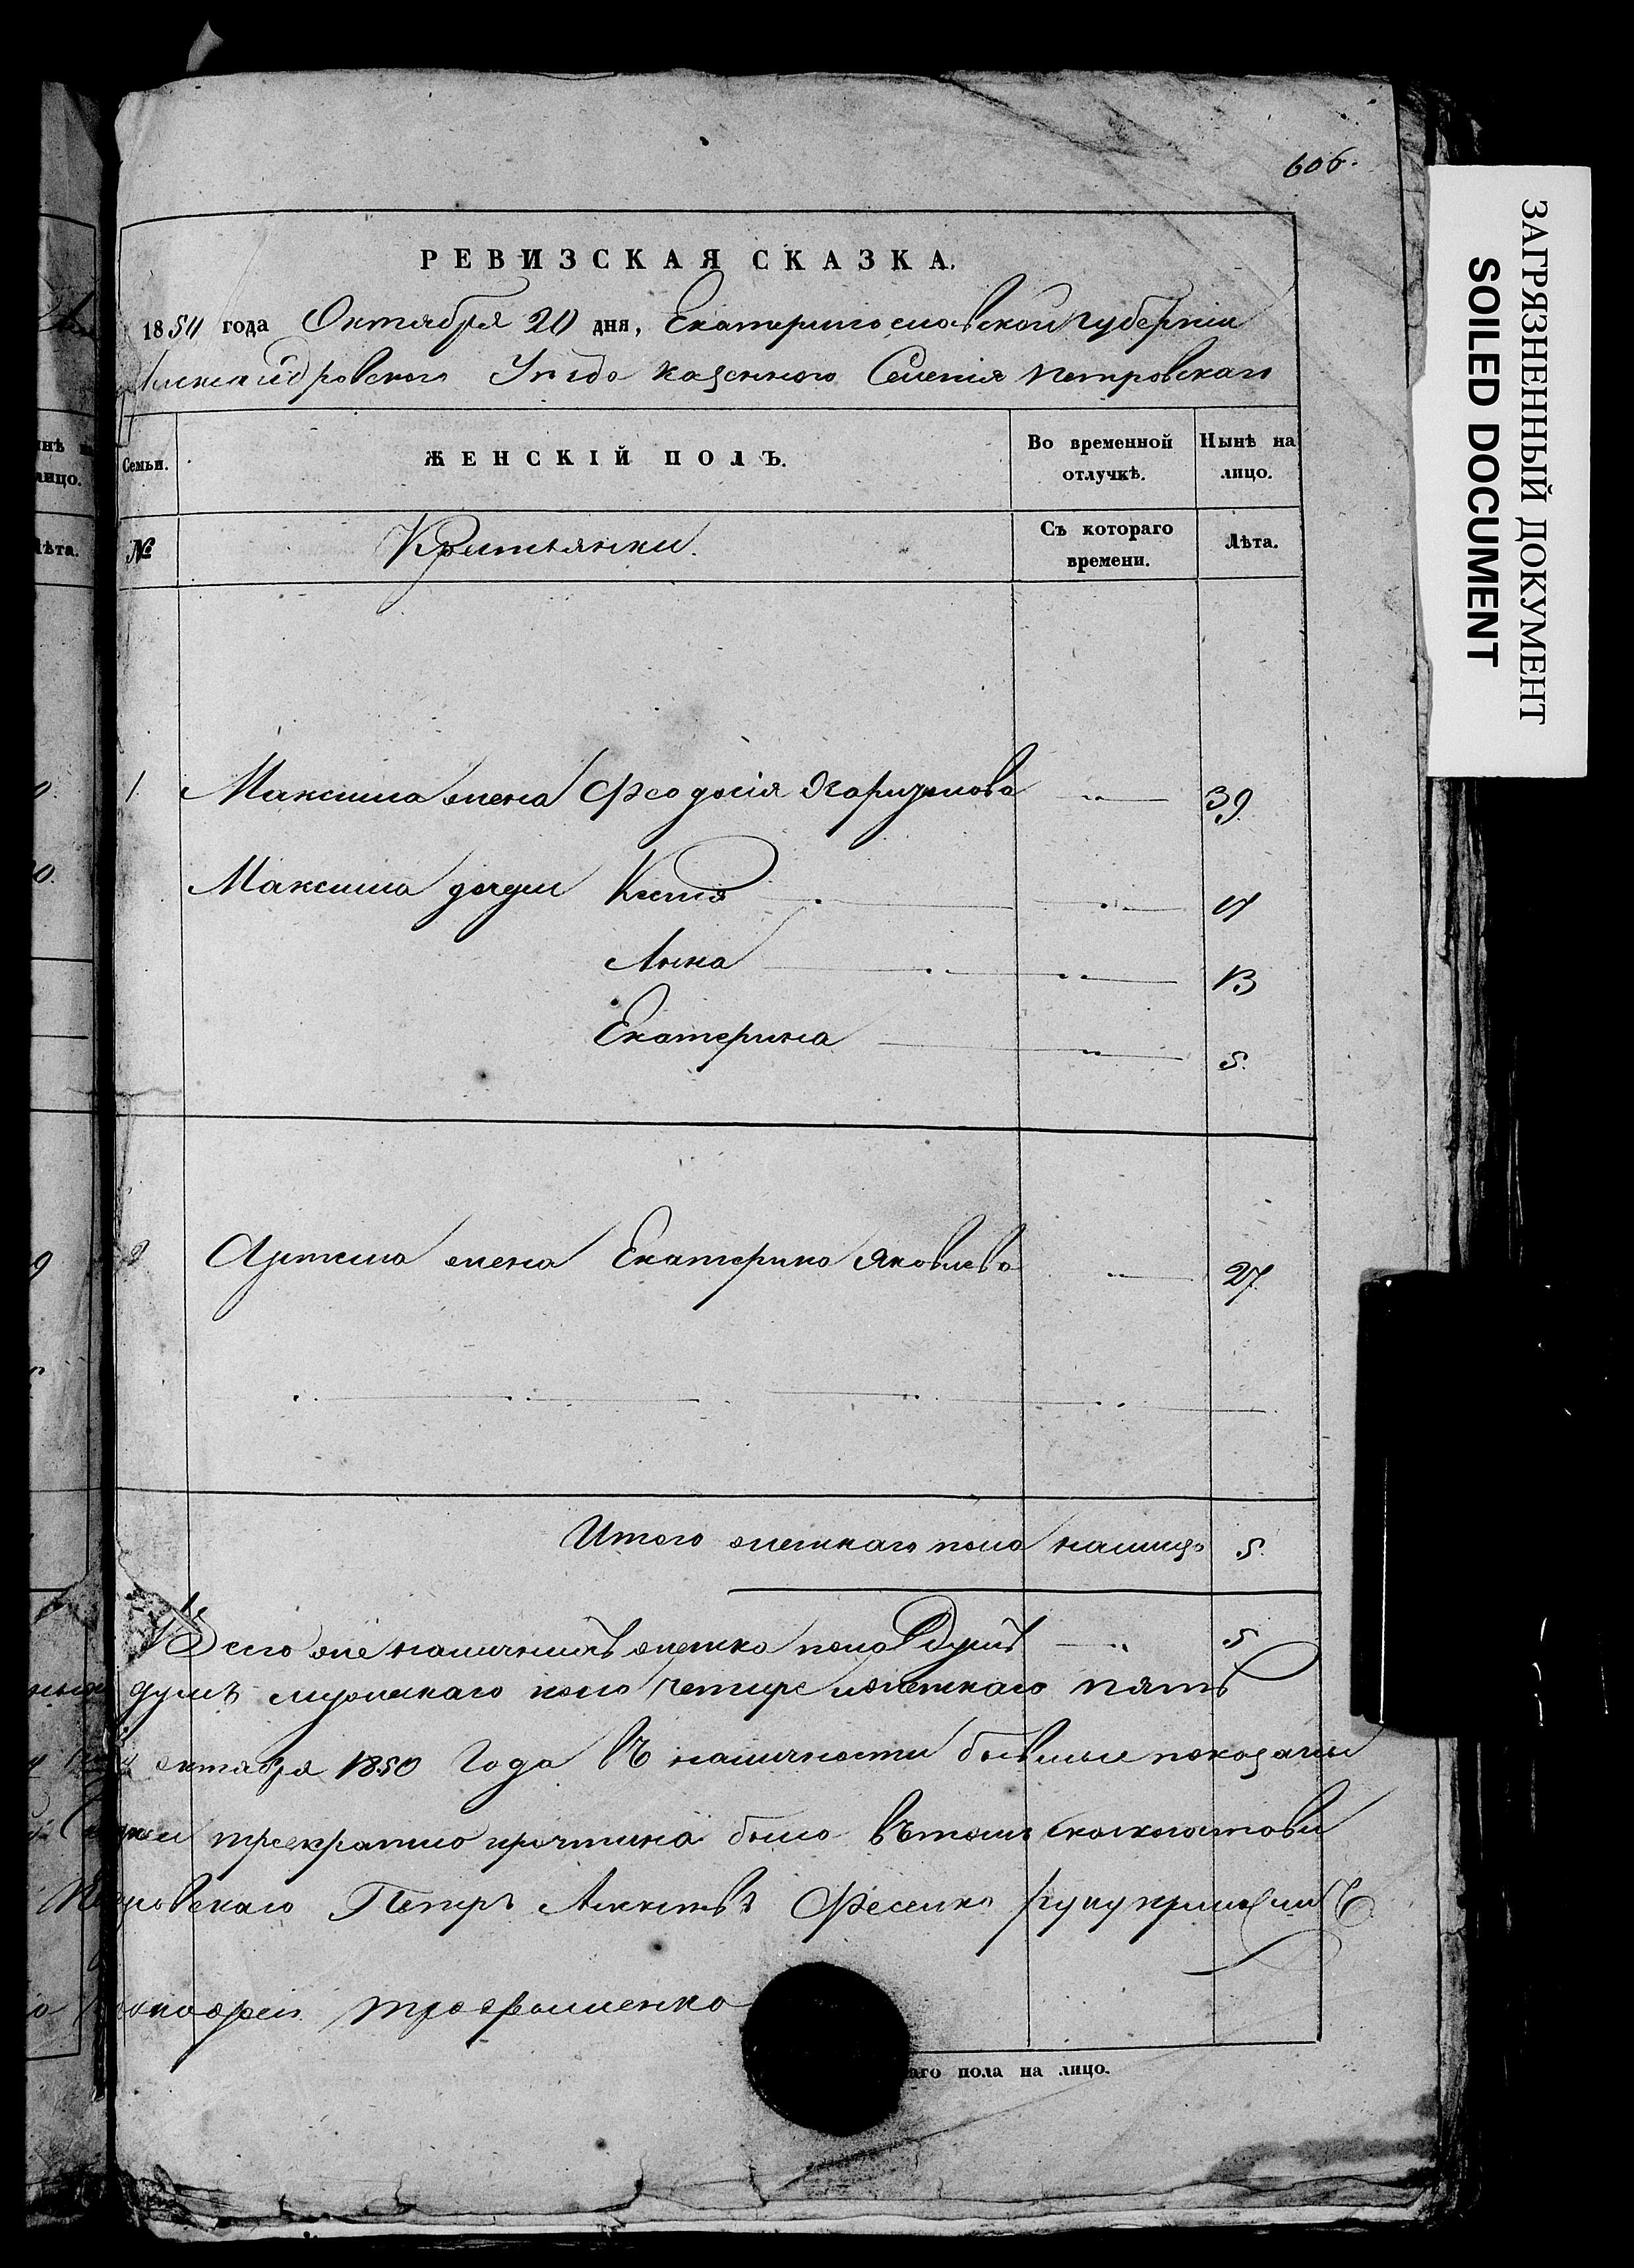 606.
РЕВИЗСКАЯ СКАЗКА.
1850 года Октября 20 дня, Екатеринославской губерніи
Александровского Уезда казенного Селенія Петровскаго
Семьи.
ЖЕНСКІЙ ПОЛЪ.
Во временной отлучкѣ.
Нынѣ на лицо.
№
Крестьянки.
Съ котораго времени.
Лѣта.
1. Максима жена Феодосія Харитонова 39.
Максима дочери Ксенія 17
Анна 13
Екатерина 5.
2 Артема жена Екатерина Яковлева 27.
Итого женскаго пола налицо 5.
Всего же наличныхъ женска пола душъ 5
душъ мужескаго пола четыре женскаго пять
октября 1850 Года въ наличности бывшие показаны
троекратно прочтина было въ томъ
Петровскаго Петръ Фесенко руку приложилъ
Трофименко
аго пола на лицо.
нѣ
лицо.
лѣта.
ЗАГРЯЗНЕННЫЙ ДОКУМЕНТ
SOILED DOCUMENT